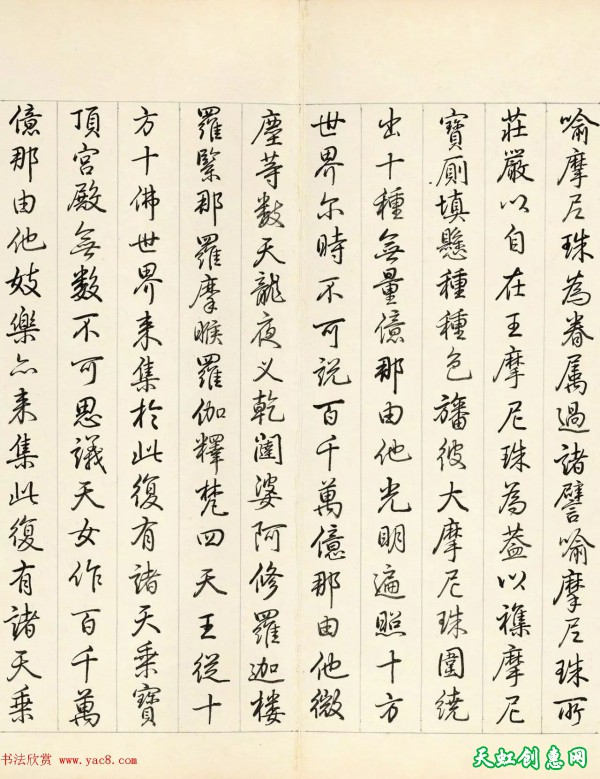 喻摩尼珠為眷属過諸譬喻摩尼珠所
莊嚴以自在王摩尼珠為葢以襍摩尼
寶厠填懸種種色旛彼大摩尼珠圍繞
出十種無量億那由他光明遍照十方
世界尔時不可说百千萬億那由他微
塵等数天龍夜义乾闼婆阿修羅迦楼
羅緊那羅摩睺羅伽釋梵四天王從十
方十佛世界来集於此復有諸天乘寶
頂宮殿無数不可思議天女作百千萬
億那由他妓樂亦来集此復有諸天乘
书法欣赏 www.yac8.com
天虹创惠网